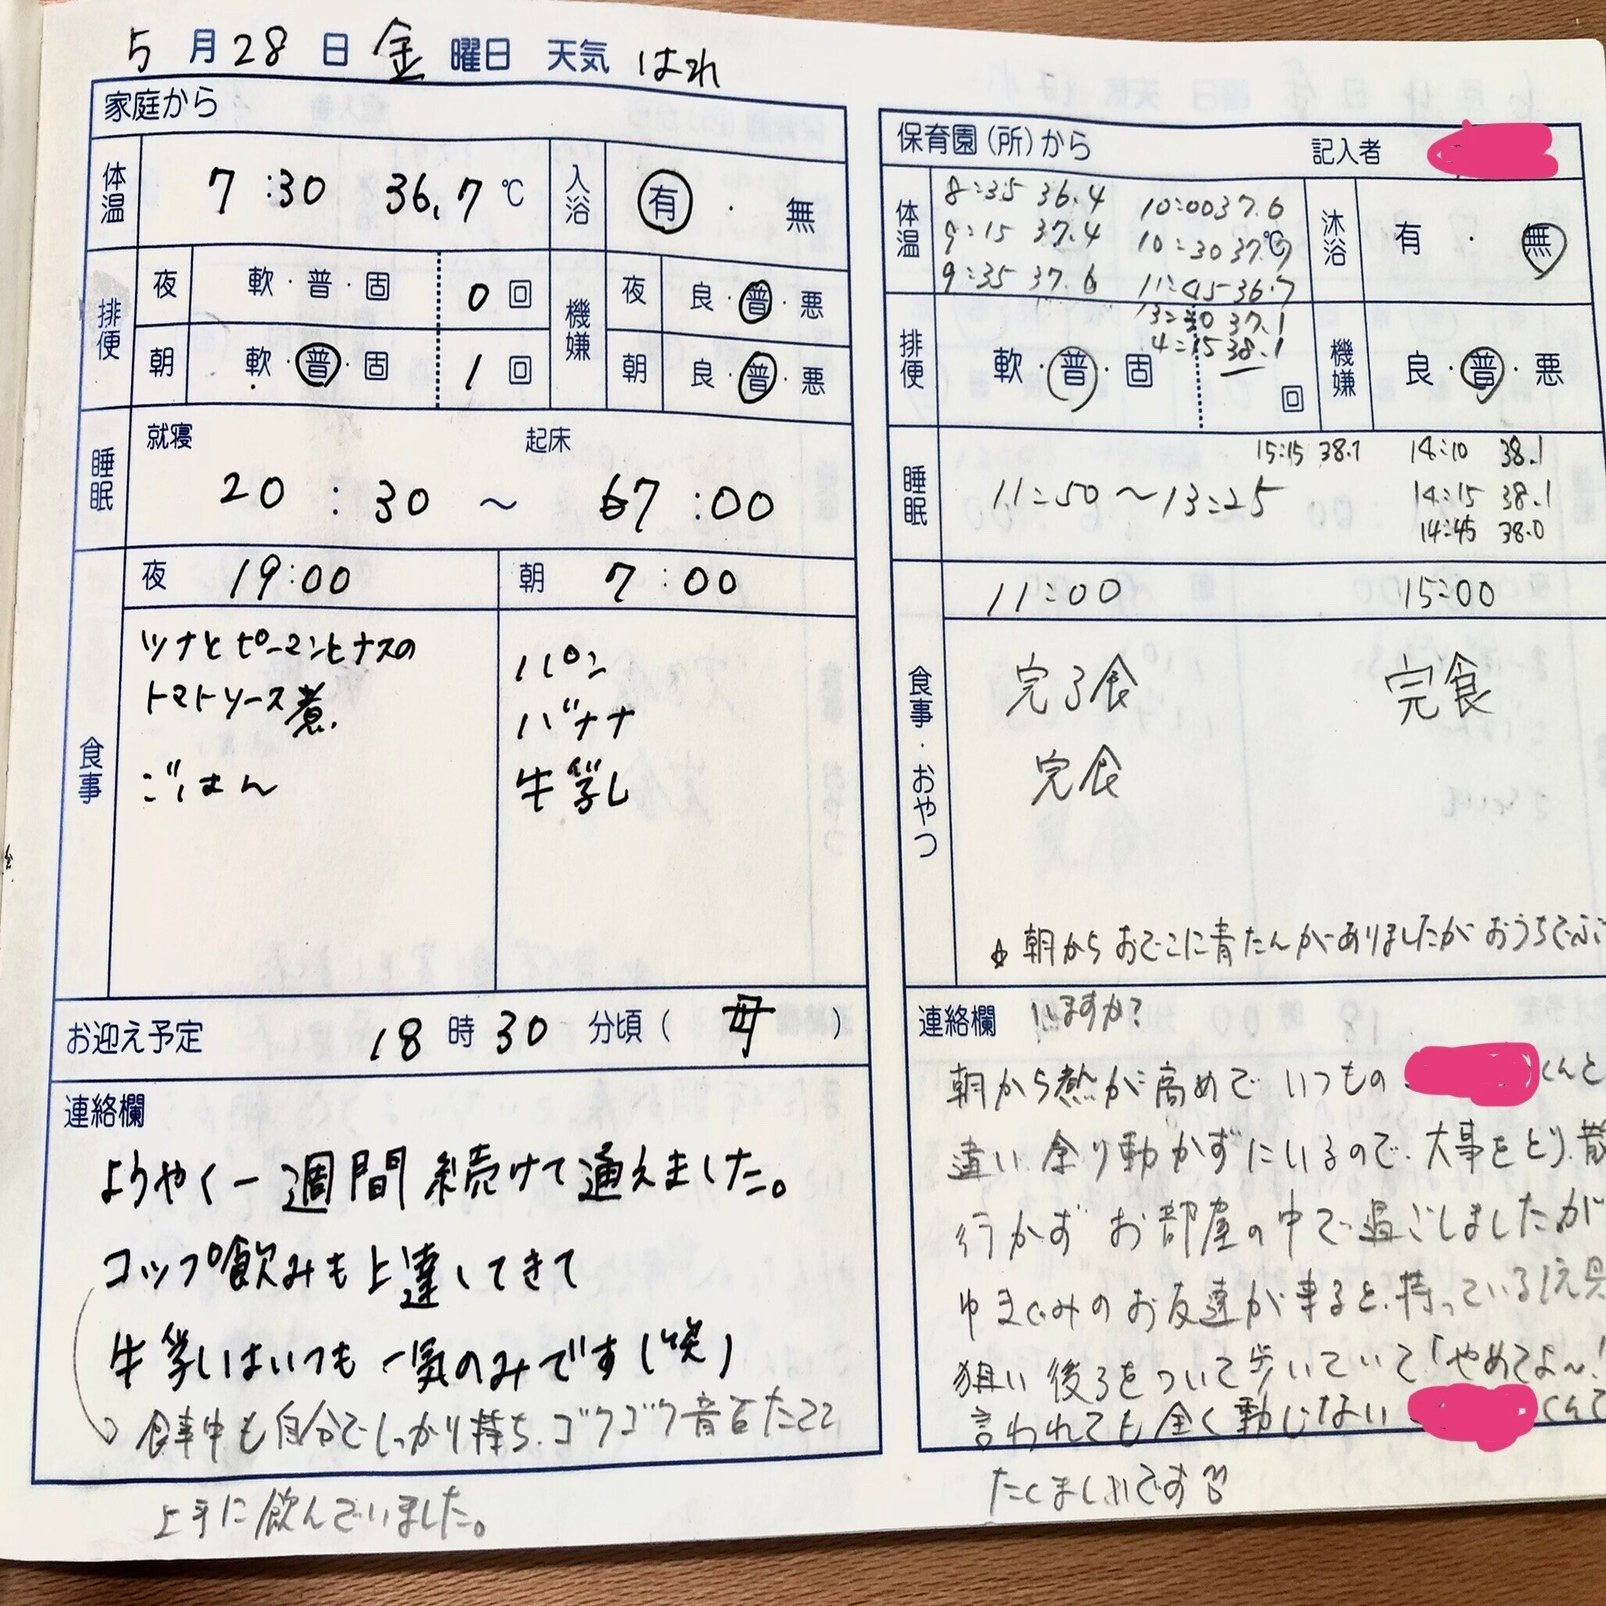 5月28日金曜日 天気 はれ
家庭から
体温 7:30 36.7℃ 入浴 有・無
排便 夜 軟・普・固 0回 機嫌 夜 良・普・悪
朝 軟・普・固 1回 朝 良・普・悪
睡眠 就寝 起床
20:30～7:00
食事 夜 19:00 朝 7:00
ツナとピーマンとナスの
トマトソース煮
ごはん
パン
バナナ
牛乳
お迎え予定 18時30分頃(母)
連絡欄
ようやく一週間続けて通えました。
コップ飲みも上達してきて
牛乳はいつも一気のみです(笑)
食事中も自分でしっかり持ち、ゴクゴク音をたてて
上手に飲んでいました。
保育園(所)から 記入者
体温 8:35 36.4 10:00 37.6 沐浴 有・無
9:15 37.4 10:30 37.7 ℃
9:35 37.6 11:45 36.7
13:30 37.1
4:15 38.1
排便 軟・普・固 回 機嫌 良・普・悪
睡眠 15:15 38.1 14:10 38.1
11:50～13:25 14:15 38.1
14:45 38.0
食事・おやつ 11:00 15:00
完了食 完食
完食
☆朝からおでこに青たんがありましたがおうちでぶ
いますか?
連絡欄
朝から熱が高めでいつもの くんと
違い、余り動かずにいるので、大事をとり、散
行かずお部屋の中で過ごしましたが
ゆまぐみのお友達が来ると、持っている玩具
狙い後ろをついて歩いていて「やめてよ～!
言われても全く動じない くんで
たくましいです